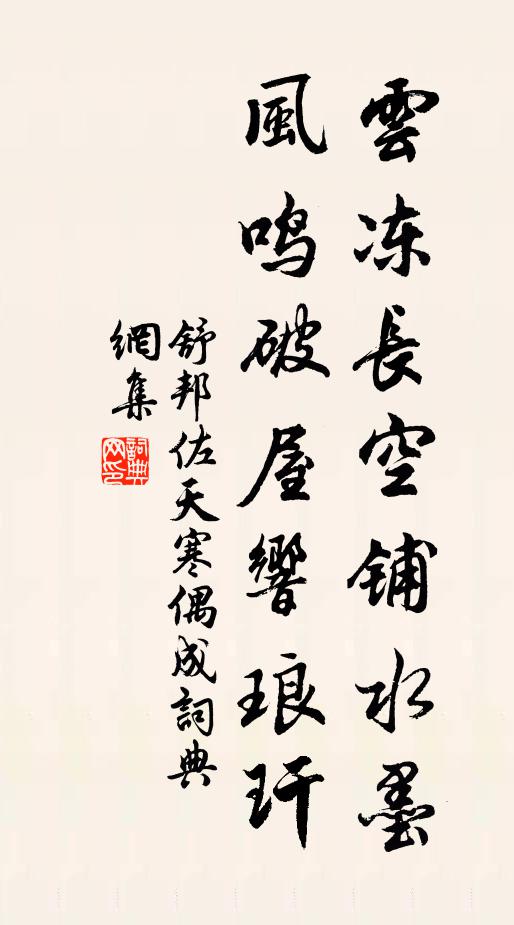 雲冻長空铺水墨
風鸣破屋響琅玕
舒邦佐天寒偶成詞典
網集
詞典网印